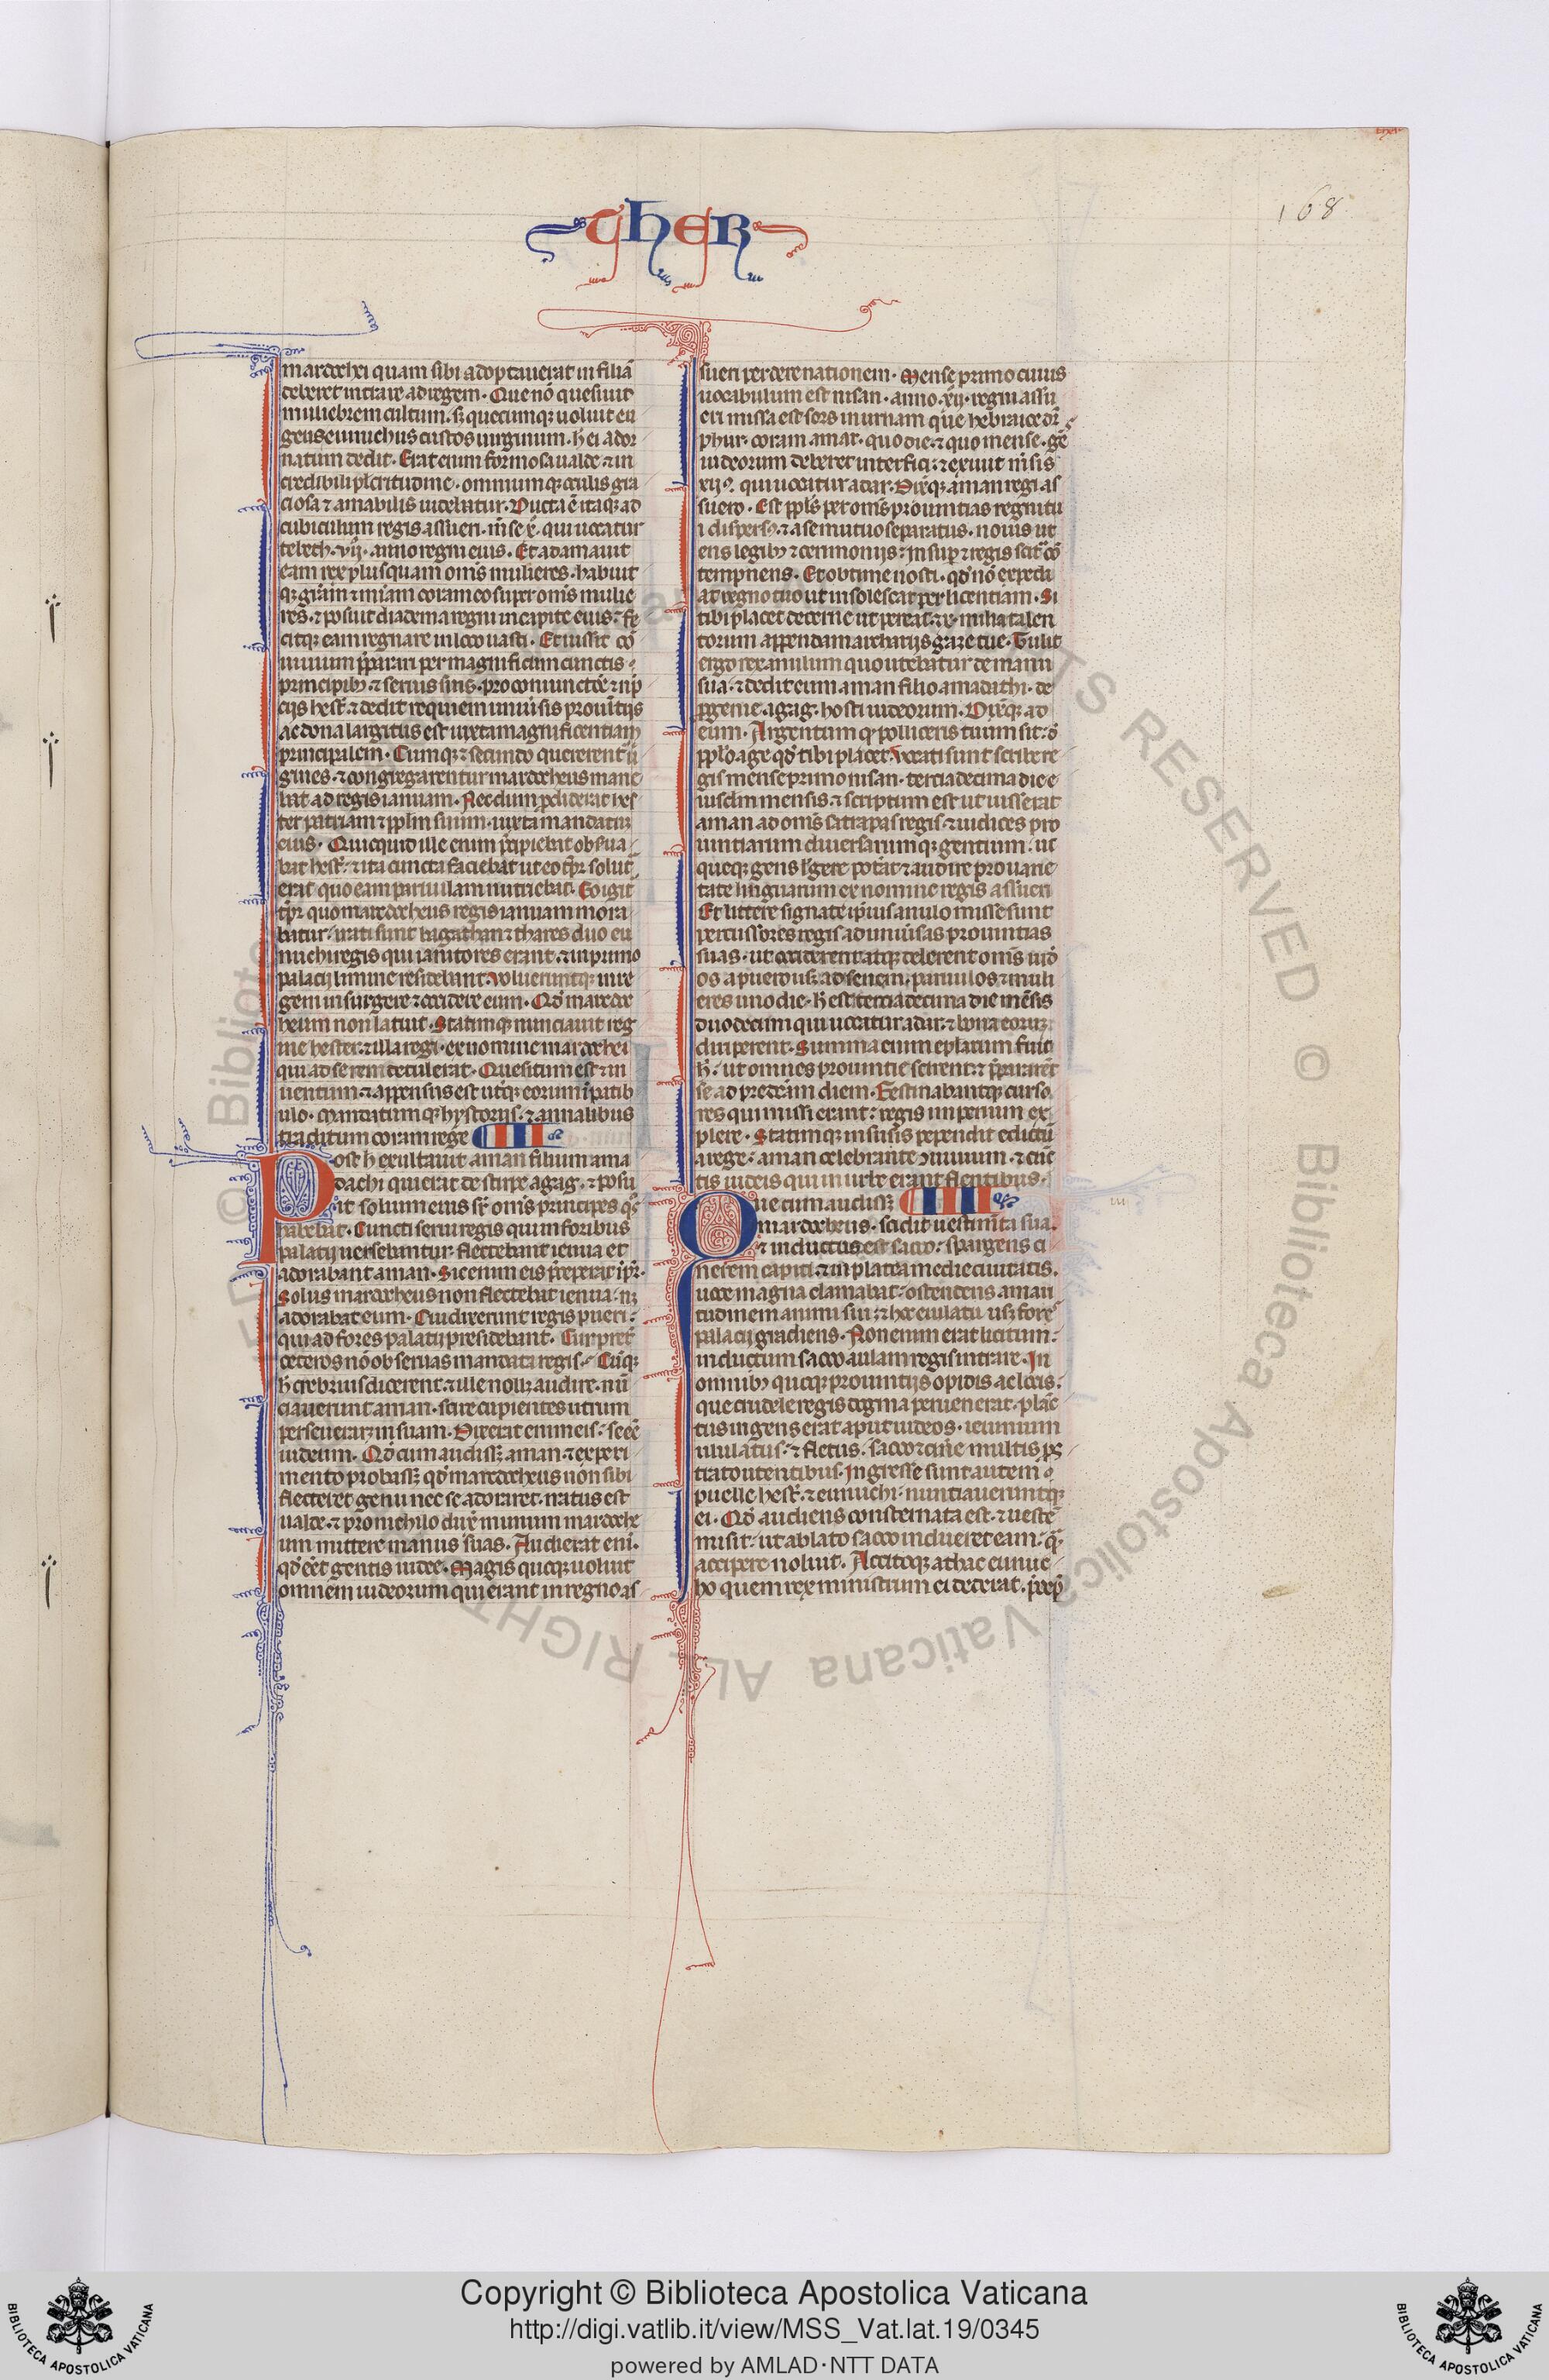 ther
168
mardochei quam sibi adoptauerat in filiã
deberet intrare ad regem. Que nõ quesiuit
muliebrem cultum. sꝫ quecumqꝫ uoluit eu
geus eunuchus custos uirginum. h ei ador
natum dedit. Erat enim formosa ualde ⁊ in
credibili plcritudine. omniumqꝫ oculis gra
ciosa ⁊ amabilis uidebatur. Ducta ẽ itaqꝫ ad
cubiculum regis assueri. mse x. qui uocatur
tebeth. vii. anno regni eius. Et adamauit
eam rex plusquam omis mulieres. habuit
qꝫ gr̃am ⁊ mĩam coram eo super omis mulie
res. ⁊ posuit diadema regni in capite eius. fe
citqꝫ eam regnare in loco uasti. Et iussit cõ
uiuium p̃parari per magnificum cunctis
principibꝫ ⁊ seruis suis. pro coniunctõe ⁊ nup
ciis hest. ⁊ dedit requiem uniuſis prouĩtiis
ac dona largitus est iuxta magnificentiam
principalem. Cumqꝫ secundo quererent ũ
gines. ⁊ congregarentur mardocheus mane
bat ad regis ianuam. Necdum prodiderat hes
ter patriam ⁊ pplm suum. iuxta mandatũ
eius. Quicquid ille enim p̃cipiebat obſua
bat hest. ⁊ ita cuncta faciebat ut eo tp̃r solit
erat quo eam paruulam nutriebat. Eo igit
tp̃r quo mardocheus regis ianuam mora
batur. irati sunt bagathan ⁊ thares duo eu
nuchi regis qui ianitores erant. ⁊ in primo
palacij limine residebant. uolueruntqꝫ in re
gem insurgere ⁊ occidere eum. Qd mardoc
heum non latuit. Statimqꝫ nunciauit reg
ine hester. ⁊ illa regi. ex nomine mardochei
qui ad se rem detulerat. Quesitum est ⁊ in
uentum. ⁊ appensus est utqꝫ eorum ĩ patib
ulo. mandatumqꝫ hystoriis. ⁊ annalibus
traditum coram rege
Post h exultauit aman filium ama
dachi qui erat de stirpe agag. ⁊ posu
it solium eius sr omis principes qs
habebat. Cuncti serui regis qui in foribus
palacij uersebantur. flectebant ienua et
adorabant aman. Sic enim eis p̃ceperat ip̃r.
Solus mardocheus non flectebat ienua. nꝫ
adorabat eum. Cui dixerunt regis pueri
qui ad fores palatij presidebant. Cur pret
ceteros nõ obseruas mandata regis. Cũqꝫ
h crebrius dicerent. ⁊ ille nollꝫ audire. nũ
ciauerunt aman. scire cupientes utrum
perseueraret in suam. Dixerat enim eis. se eẽ
iudeum. Qd cum audissꝫ aman. ⁊ experi
mento probassꝫ qd mardocheus non sibi
flecteret genu nec se adoraret. iratus est
ualde. ⁊ pro nichilo dux̃ unum mardoche
um mittere manus suas. Audierat eni.
qd eẽt gentis iudee. Magis queqꝫ uoluit
omnem iudeorum qui erant in regno as
sueri perdere nationem. Mense primo cuius
uocabulum est nisan. anno. xij. regni assu
eri missa est sors in urnam que hebraice dr̃
phur. coram aman. quo die. ⁊ quo mense. gẽ
iudeorum deberet interfici. ⁊ exiuit m̃sis
xijꝰ. qui uocatur adar. Dixitqꝫ aman regi as
suero. Est ppls per omis prouintias regni tu
i dispersꝰ. ⁊ a se mutuo separatus. nouis ut
ens legibꝫ ⁊ cerimonijs. in sup ⁊ regis scita cõ
tempnens. Et obtime nosti. qd nõ expedi
at regno tuo ut insolescat per licentiam. Si
tibi placet decerne ut pereat. ⁊ x. milia talen
torum appendam archarijs gaze tue. Tulit
ergo rex anulum quo utebatur de manu
sua. ⁊ dedit eum aman filio amadathi. de
progenie. agag. hosti iudeorum. Dixitqꝫ ad
eum. Argentum q polliceris tuum sit. de
pplo age qd tibi placet. Vocati sunt scribe re
gis mense primo nisan. tercia decima die e
iusdm mensis. ⁊ scriptum est ut iusserat
aman ad omis satrapas regis. ⁊ iudices pro
uintiarum diuersarumqꝫ gentium. ut
queqꝫ gens legere potat. ⁊ audire pro uarie
tate linguarum ex nomine regis assueri
Et littere signate ip̃ius anulo misse sunt
per cursores regis ad uniuſas prouintias
suas. ut occiderent atqꝫ delerent omis iud
os a puero usqꝫ ad senem. paruulos ⁊ muli
eres uno die. h est tercia decima die m̃sis
duodecim qui uocatur adar. ⁊ bona eorum
diriperent. Summa enim eplarum fuit
h. ut omnes prouintie scirent. ⁊ p̃pararẽt
se ad predcam diem. Festinabantqꝫ curso
res qui missi erant. regis imperium ex
plere. Statimqꝫ in susis pependit edictũ
a rege. aman celebrante conuiuium. ⁊ cũc
tis iudeis qui in urbe erant flentibus.
Que cum audissꝫ
mardocheus. scidit uestim̃ta sua.
⁊ indutus est sacco. spargens ci
nerem capiti. ⁊ in platea medie ciuitatis.
uoce magna clamabat. ostendens amari
tudinem animi sui. ⁊ hoc eiulatu usqꝫ fores
palacij gradiens. Non enim erat licitum.
indutum sacco aulam regis intrare. In
omnibꝫ queqꝫ prouintijs opidis ac locis.
que crudele regis dogma peruenerat. planc
tus ingens erat aput iudeos. ieiunium
ululatus. ⁊ fletus. sacco ⁊ cinẽ multis p̃s
trato utentibus. Ingresse sunt autem
puelle hest. ⁊ eunuchi. nuntiaueruntqꝫ
ei. Qd audiens consternata est. ⁊ uestẽ
misit. ut ablato sacco indueret eam. q̃.
accipere noluit. Accitoqꝫ athac eunuc
ho quem rex ministrum ei dederat. p̃cep
Copyright © Biblioteca Apostolica Vaticana
http://digi.vatlib.it/view/MSS_Vat.lat.19/0345
powered by AMLAD·NTT DATA
BIBLIOTECA APOSTOLICA VATICANA
BIBLIOTECA APOSTOLICA VATICANA